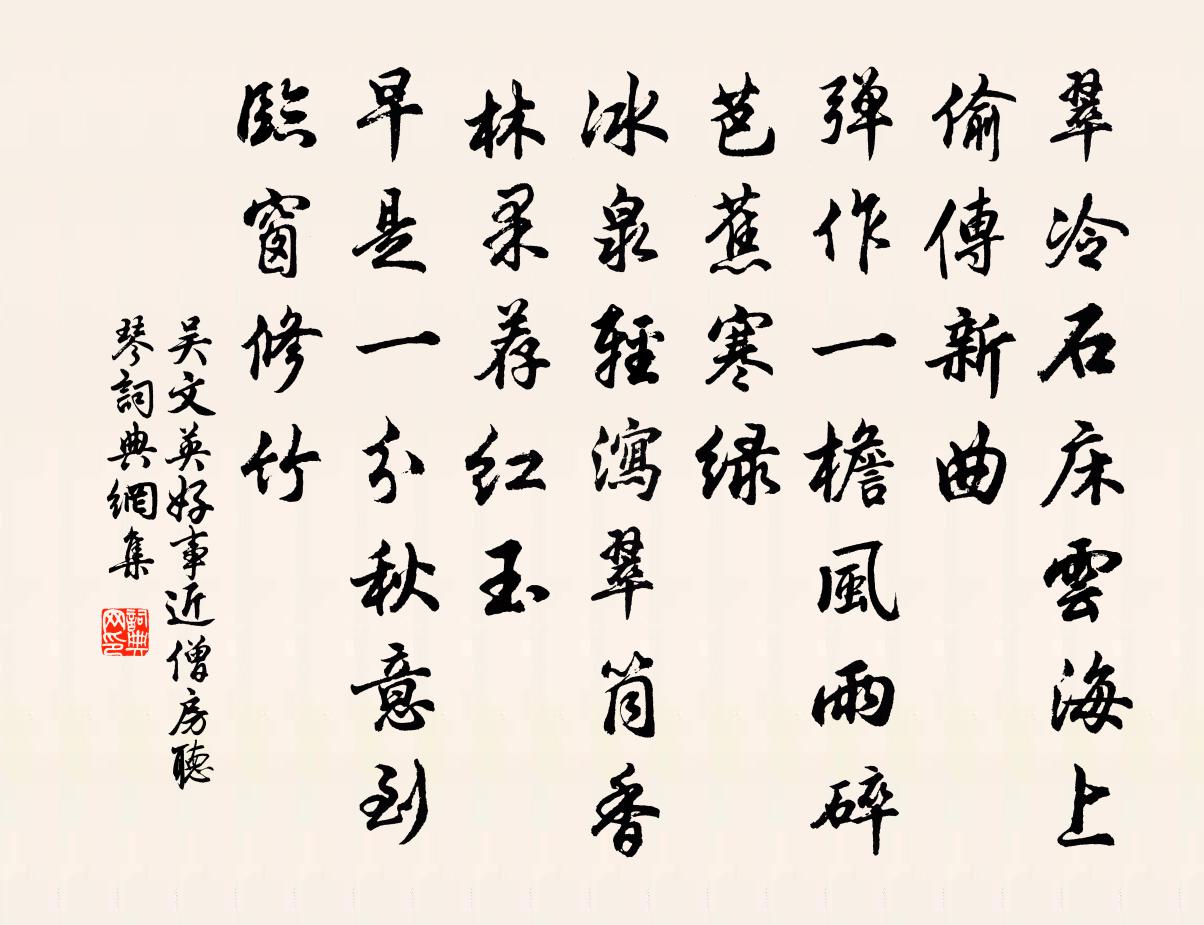 翠冷石床雲海上
偷傳新曲
弾作一檐風雨碎
芭蕉寒緑
冰泉輕瀉翠筒香
林果荐红玉
早是一分秋意到
臨窗修竹
吴文英好事近僧房聽
琴詞典網集
詞典
网印